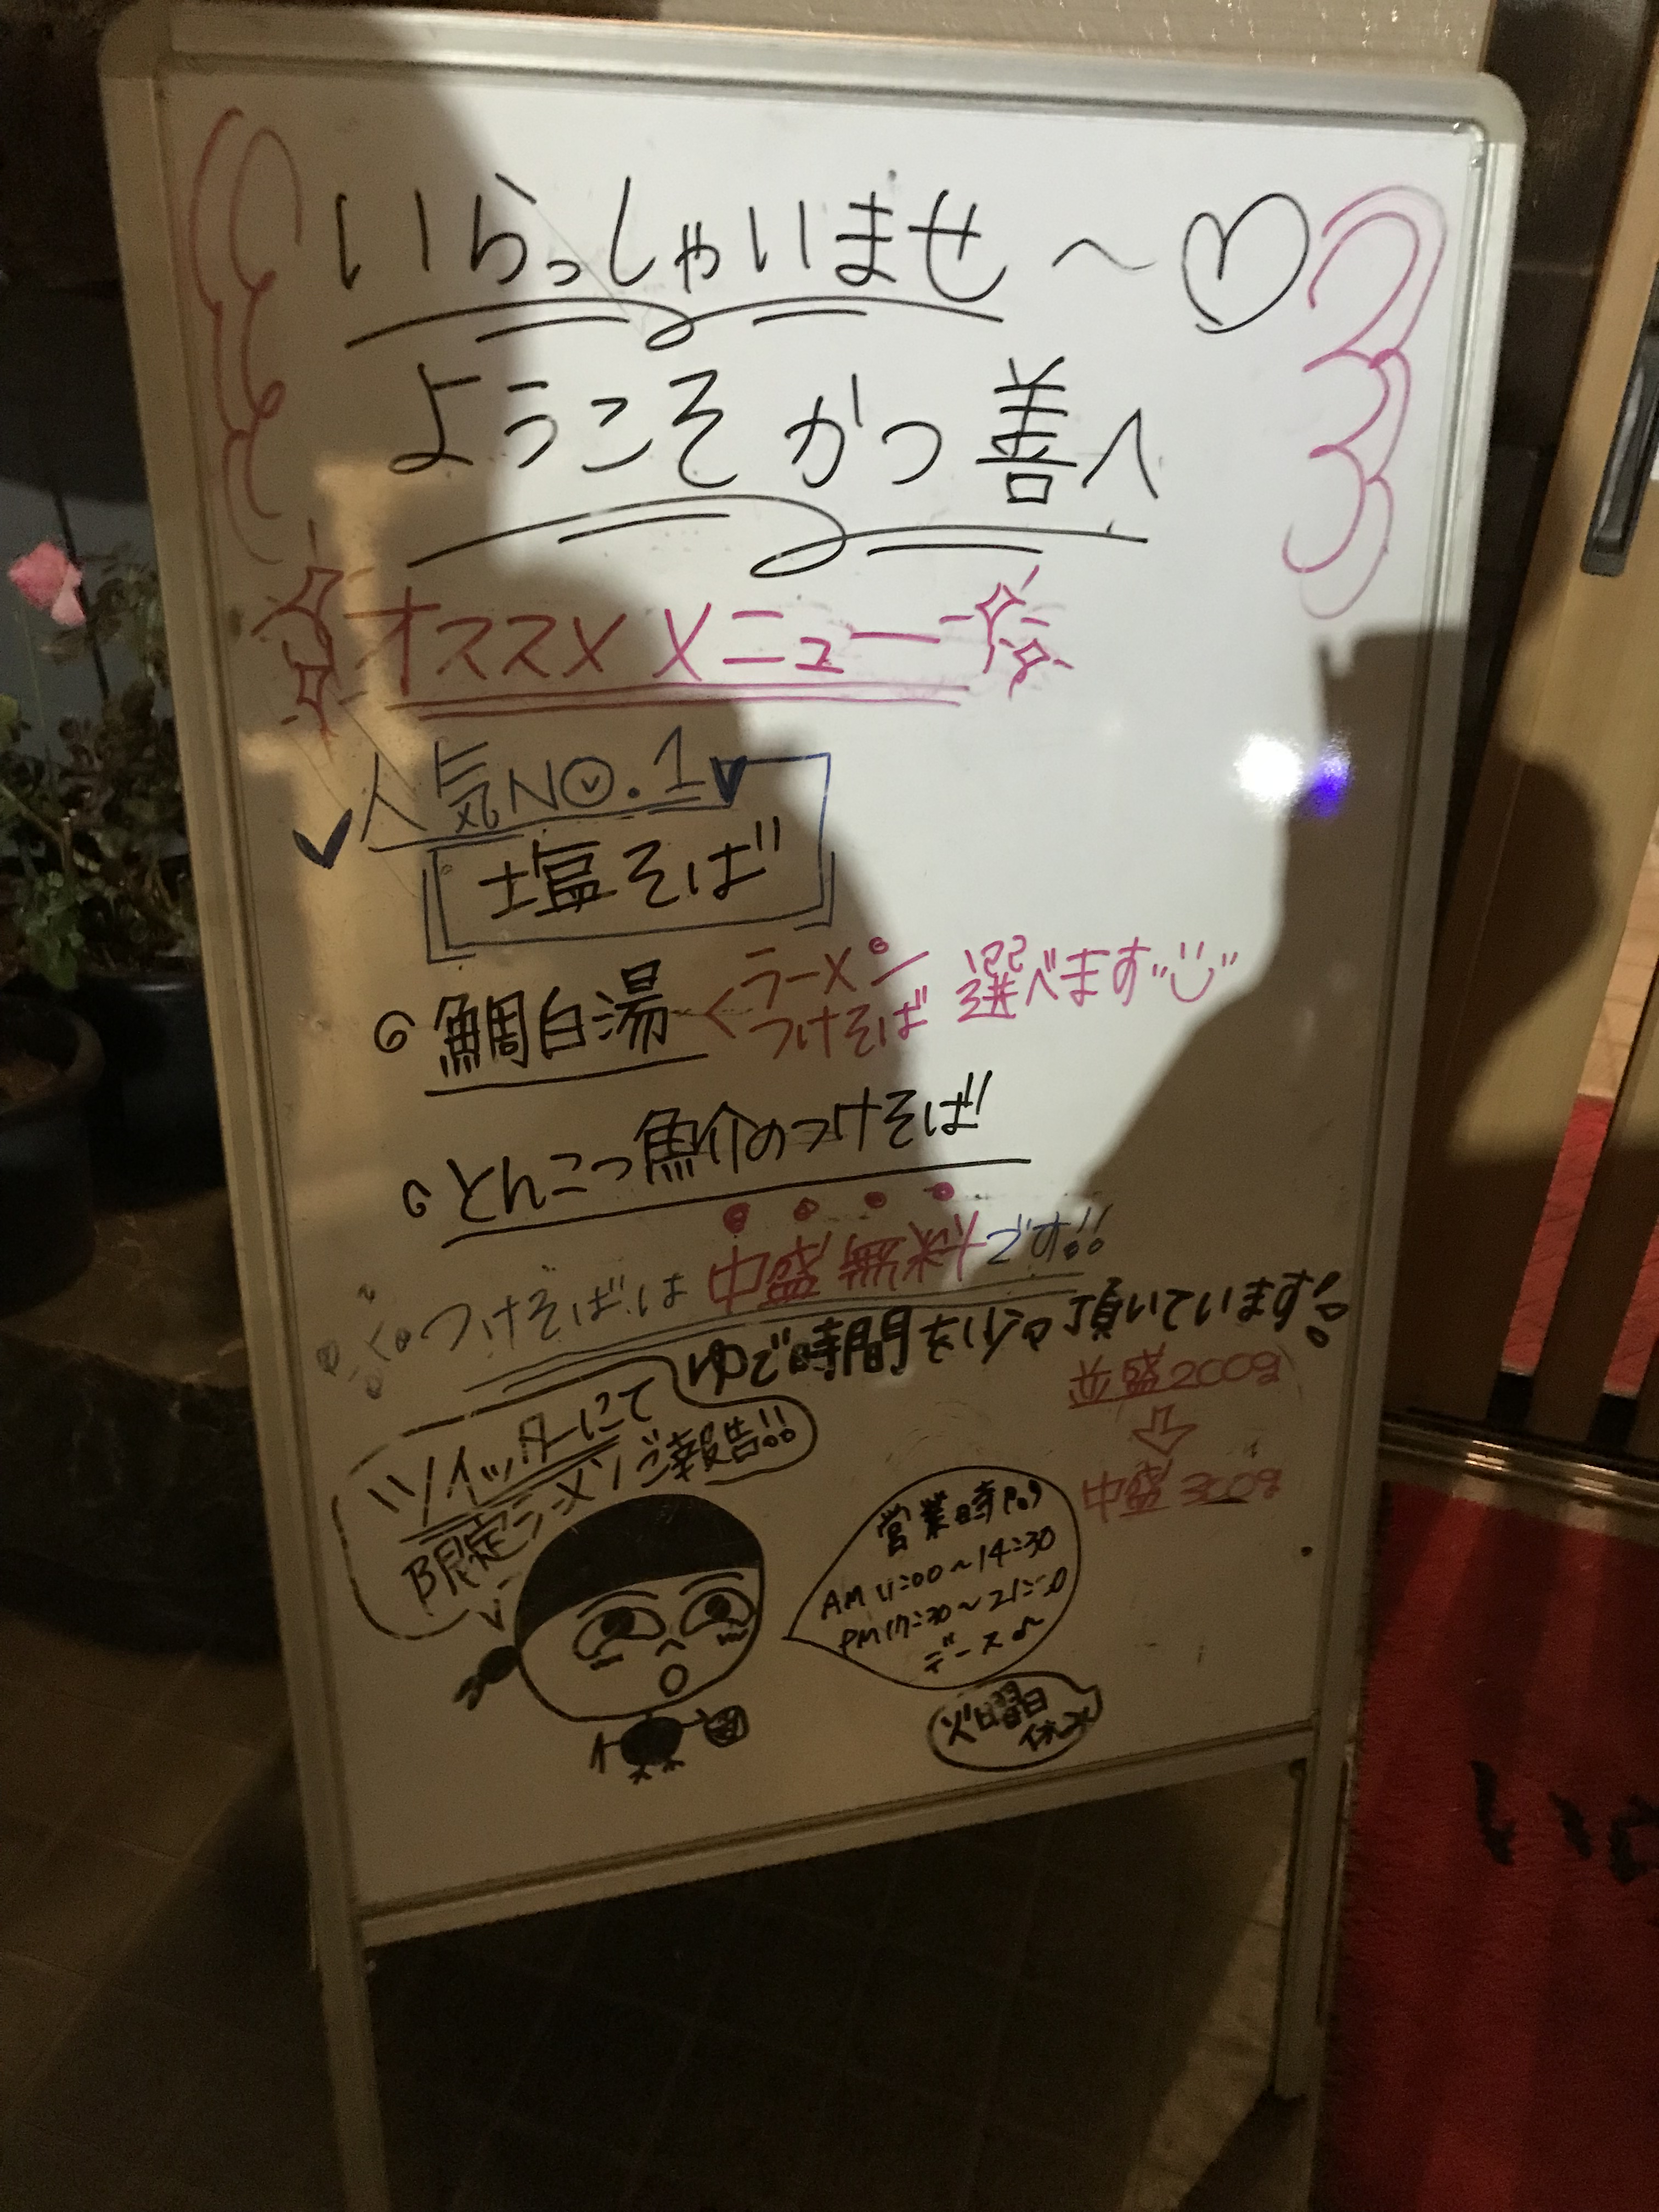 いらっしゃいませ～♡
ようこそ かつ善へ
オススメメニュー
人気NO.1
塩そば
鯛白湯 ラーメン つけそば 選べます
とんこつ魚介のつけそば
つけそばは中盛無料です!!
ゆで時間を少々頂いています!!
並盛200g
⇩
中盛300g
ツイッターにて
限定ラーメンご報告!!
営業時間
AM 11:00～14:30
PM 17:30～21:00
デース♪
火曜日
休み
いら